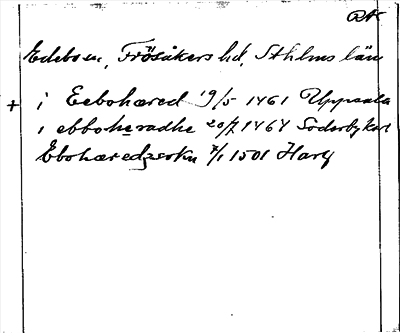 RA
Edebo sn, Frösåkers hd, Sthlms län
+ i Eebohæred 19/5 1461 Uppsala
i ebboheradhe 20/7 1464 Söderbykarl
Ebohæredzsokn 7/1 1501 Harg